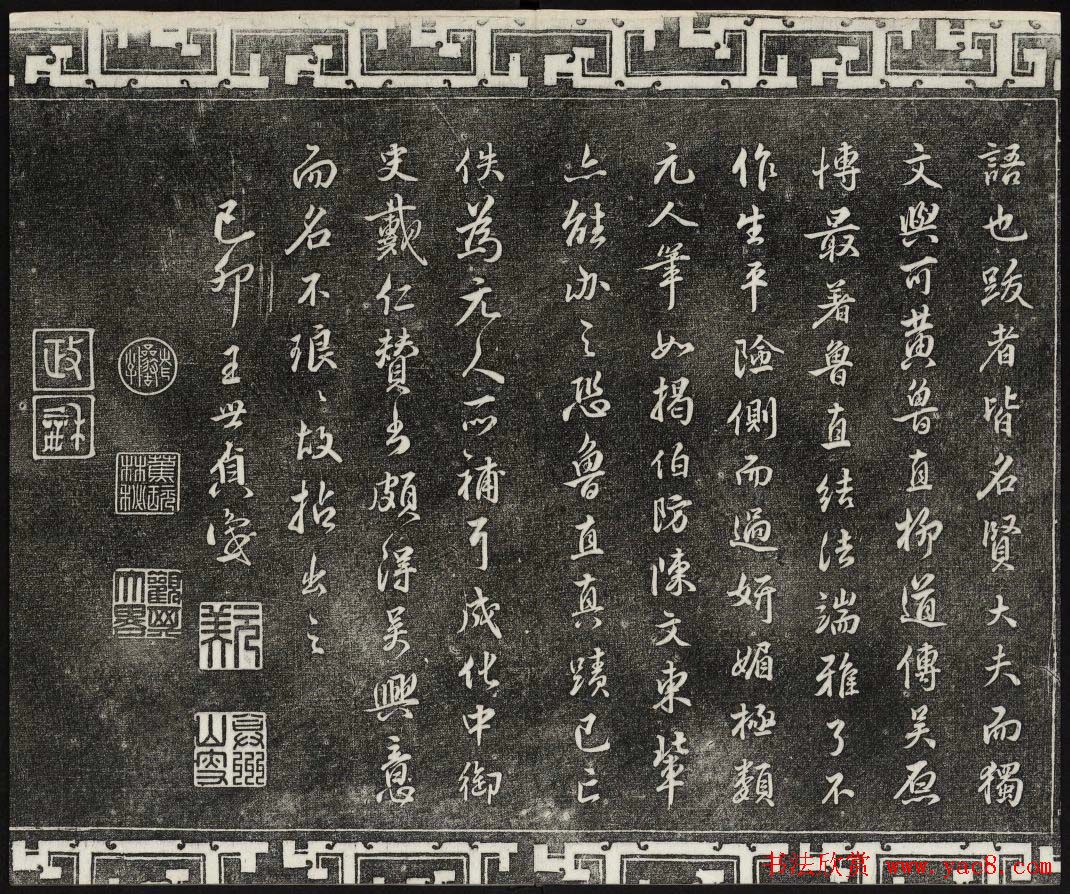 語也跋者皆名賢大夫而獨
文與可黄魯直柳道傳吴原
博最著魯直結法端雅了不
作生平險側而過妍媚極類
元人筆如揭伯防陳文東輩
亦能办之恐魯直真蹟已亡
佚為元人所補耳成化中御
史戴仁贊書頗得吴興意
而名不琅〻故拈出之
己卯王世貞識
元美
書法欣赏 www.yac8.com